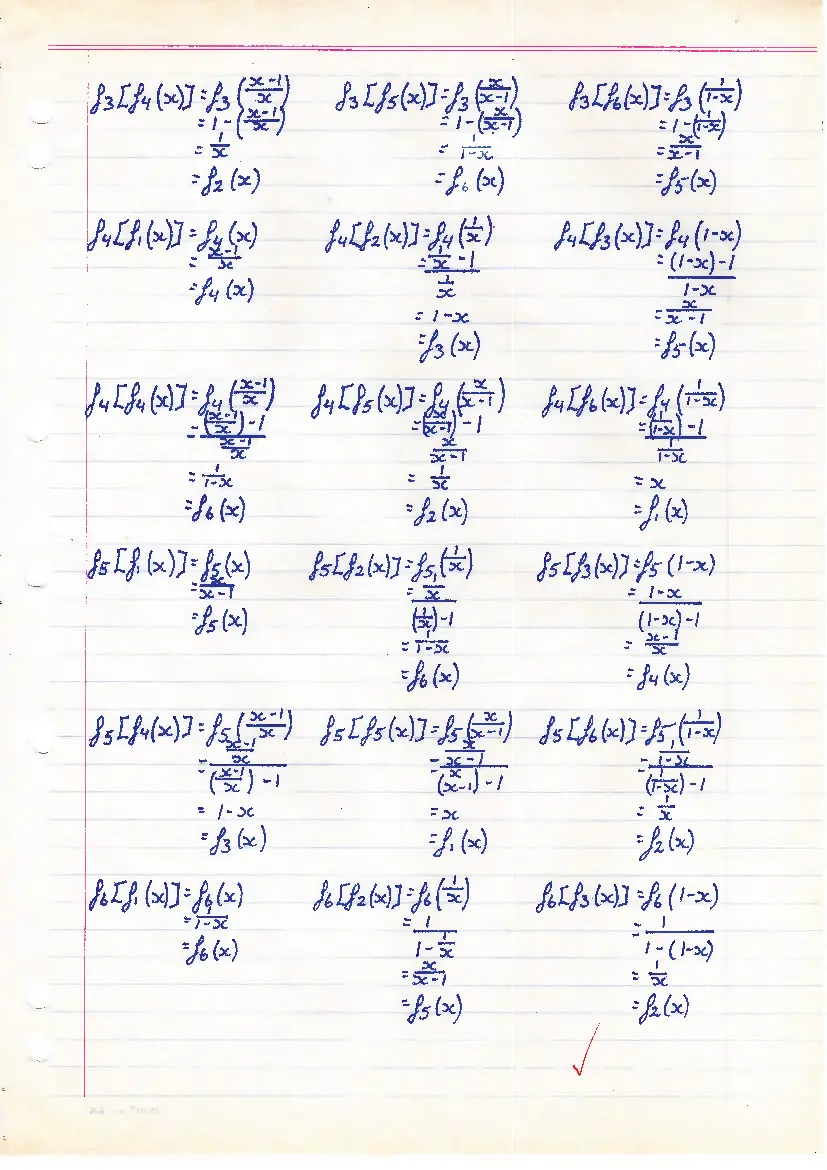 f3[f4(x)] = f3((x-1)/x)
= 1-((x-1)/x)
= 1/x
= f2(x)
f3[f5(x)] = f3(x/(x-1))
= 1-(x/(x-1))
= 1/(1-x)
= f6(x)
f3[f6(x)] = f3(1/(1-x))
= 1-(1/(1-x))
= x/(x-1)
= f5(x)
f4[f1(x)] = f4(x)
= (x-1)/x
= f4(x)
f4[f2(x)] = f4(1/x)
= (1/x - 1)/(1/x)
= 1-x
= f3(x)
f4[f3(x)] = f4(1-x)
= ((1-x)-1)/(1-x)
= x/(x-1)
= f5(x)
f4[f4(x)] = f4((x-1)/x)
= (((x-1)/x)-1)/((x-1)/x)
= 1/(1-x)
= f6(x)
f4[f5(x)] = f4(x/(x-1))
= ((x/(x-1))-1)/(x/(x-1))
= 1/x
= f2(x)
f4[f6(x)] = f4(1/(1-x))
= ((1/(1-x))-1)/(1/(1-x))
= x
= f1(x)
f5[f1(x)] = f5(x)
= x/(x-1)
= f5(x)
f5[f2(x)] = f5(1/x)
= (1/x)/((1/x)-1)
= 1/(1-x)
= f6(x)
f5[f3(x)] = f5(1-x)
= (1-x)/((1-x)-1)
= (x-1)/x
= f4(x)
f5[f4(x)] = f5((x-1)/x)
= ((x-1)/x)/(((x-1)/x)-1)
= 1-x
= f3(x)
f5[f5(x)] = f5(x/(x-1))
= (x/(x-1))/((x/(x-1))-1)
= x
= f1(x)
f5[f6(x)] = f5(1/(1-x))
= (1/(1-x))/((1/(1-x))-1)
= 1/x
= f2(x)
f6[f1(x)] = f6(x)
= 1/(1-x)
= f6(x)
f6[f2(x)] = f6(1/x)
= 1/(1-1/x)
= x/(x-1)
= f5(x)
f6[f3(x)] = f6(1-x)
= 1/(1-(1-x))
= 1/x
= f2(x)